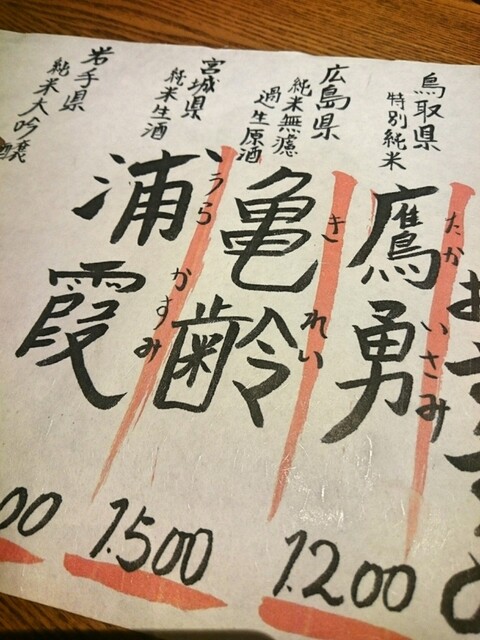 鳥取県
特別純米
鷹勇
たかいさみ
広島県
純米無濾
過生原酒
亀齢
きれい
1.200
宮城県
純米生酒
浦霞
うらかすみ
1.500
岩手県
純米大吟醸
00